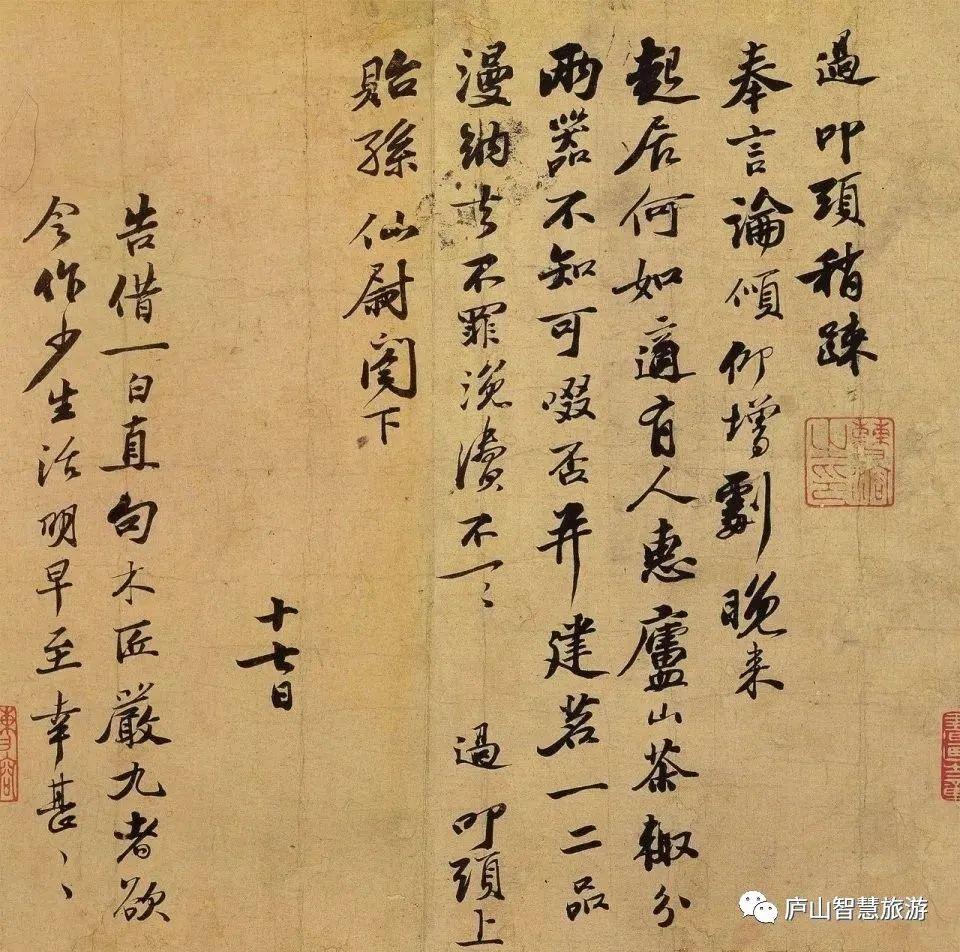 過叩頭稍疎
奉言論傾仰增劇晚来
起居何如適有人惠廬山茶輙分
兩器不知可啜否并建茗一二品
漫納去不罪浼瀆不一一 過叩頭上
貽孫仙尉閤下
十七日
告借一白直句木匠嚴九者欲
令作少生活明早至幸甚〻
庐山智慧旅游